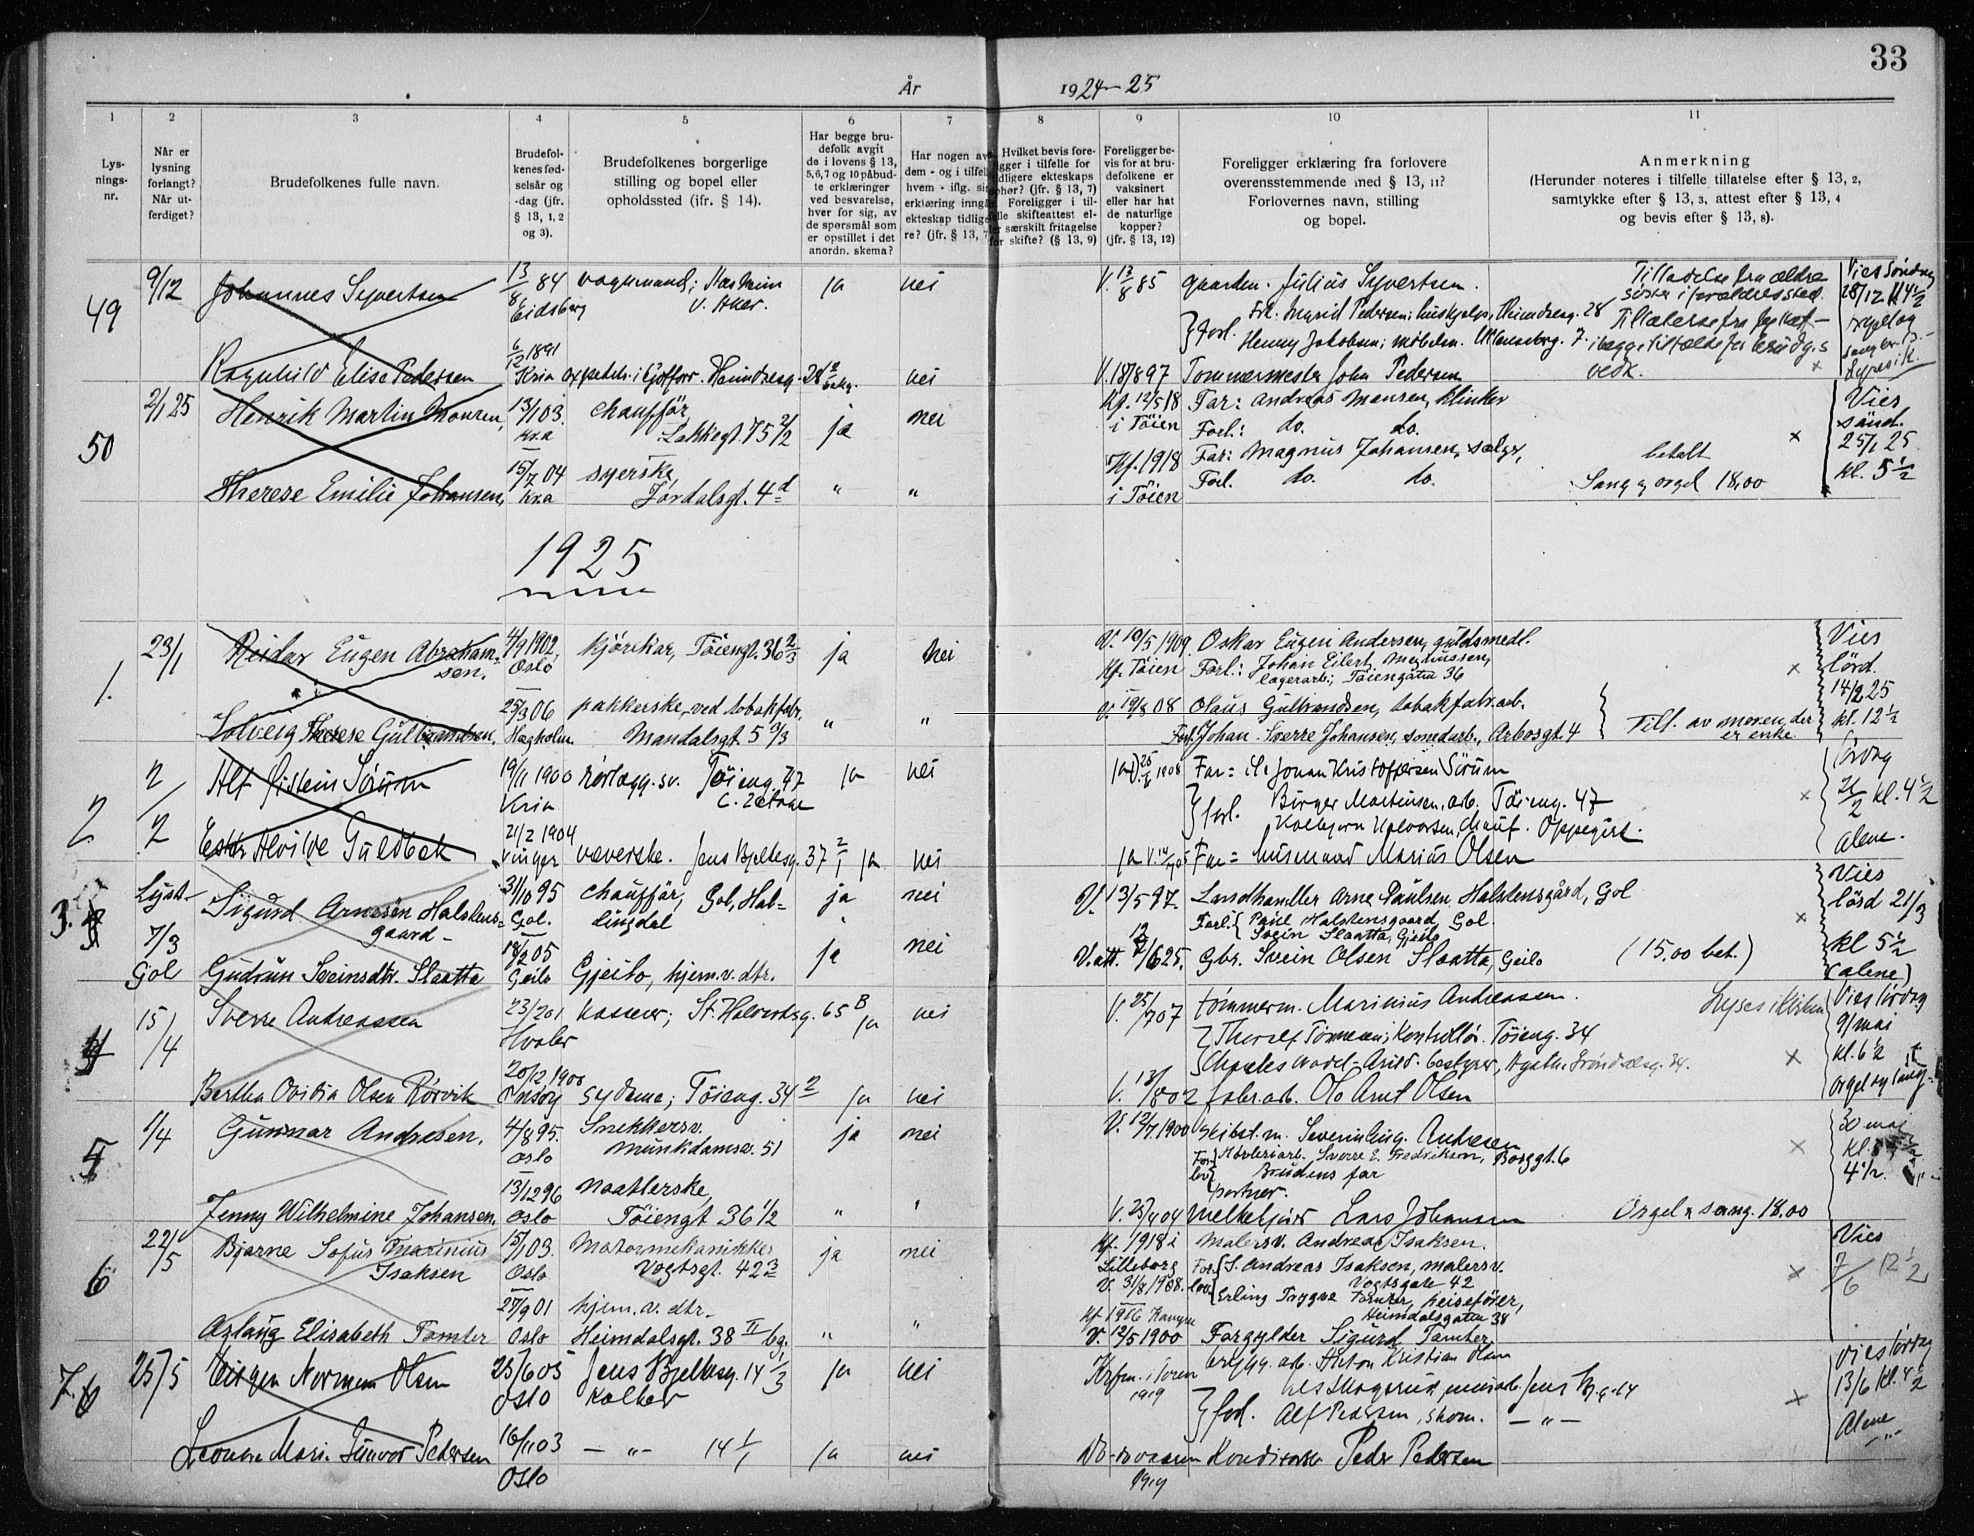 33
År 1924-25
1 2 3 4 5 6 7 8 9 10 11
Lysningsnr.
Når er lysning forlangt? Når utferdiget?
Brudefolkenes fulle navn.
Brudefolkenes fødselsår og -dag (jfr. § 13, 1, 2 og 3).
Brudefolkenes borgerlige stilling og bopel eller opholdssted (ifr. § 14).
Har begge brudefolk avgit de i lovens § 13, 5,6,7 og 10 påbudte erklæringer ved besvarelse, hver for sig, av de spørsmål som er opstillet i det anordn. skema?
Har nogen av dem - og i tilfelle hvem - iflg. sin erklæring inngått ekteskap tidligere? (jfr. § 13, 7)
Hvilket bevis foreligger i tilfelle for tidligere ekteskaps ophør? (jfr. § 13, 7) Foreligger i tilfelle skifteattest eller særskilt fritagelse for skifte? (§ 13, 9)
Foreligger bevis for at brudefolkene er vaksinert eller har hat de naturlige kopper? (jfr. § 13, 12)
Foreligger erklæring fra forlovere overensstemmende med § 13, 11? Forlovernes navn, stilling og bopel.
Anmerkning
(Herunder noteres i tilfelle tillatelse efter § 13, 2, samtykke efter § 13, 3, attest efter § 13, 4 og bevis efter § 13, 8).
49 9/12 Johannes Syvertsen 13/8 84 Eidsberg ja nei V. 13/8 85 gaardm. Julius Syvertsen.
Forl. Henny Jakobsen;
Ragnhild Elise Pedersen 6/12 1891 Kria nei V. 18/8 97 Tømmermester John Pedersen
50 2/1 25 Henrik Martin Monsen, 13/1 03. Kr.a chaufför Lakkegt. 75 2/2 ja nei Kf. 12/5 18 i Töien Far: Andreas Monsen, klinker
Forl.: do. do. Vies sönd. 25/1 25. kl. 5 1/2
Therese Emilie Johansen, 15/7 04 Kr.a syerske Jordalsgt. 4d " " Kf. 1918 i Töien Far: Magnus Johansen, sælgr,
Forl. do. do. betalt Sang og orgel 18,00
1925
1. 23/1 Reidar Eugen Abrahamsen. 4/9 1902, Oslo kjörekar, Töiengt. 36 2/3 ja nei V. 19/5 1909 Kf. Töien Oskar Eugen Andersen, guldsmedl.
Forl.: Johan Eilert Magnussen, lagerarb., Töiengata 36 Vies lörd. 14/2 25 kl. 12 1/2
Solveig Therese Gulbrandsen, 25/3 06 Hægholm pakkerske ved tobakfabr. Mandalsgt. 5 " " V. 19/8 08 Olaus Gulbrandsen, tobakfabr.arb.
Forl. Johan Sverre Johansen, smedarb., Arbosgt. 4 Till. av moren, der er enke.
2. 2/2 Alf Øistein Sørum 19/11 1900 Kria rørlegg. sv. Tøieng. 47 ja nei Far = Johan Kristoffersen Sørum
forl. Birger Martinsen, arb. Tøieng. 47
Halvorsen, Chauf. Oppegård. Lørdag 21/2 kl. 4 1/2 alene.
Ester Alvilde Guldbek 21/2 1904 Vinger væverske. Jens Bjelkesg. 37 2/1 ja nei Far = husmand Marius Olsen
3. Lyst 7/3 Gol Sigurd Arnesen Halstensgaard 31/10 95 Gol. chaufför, Gol, Hallingdal ja nei V. 13/5 97. Landhandler Arne Paulsen Halstensgård, Gol
Forl. Paul Halstensgaard, Gol.
Svein Slaatta, Gjeilo Vies lörd 21/3 kl 5 1/2 (alene)
Gudrun Sveinsdtr. Slaatta 18/2 05 Geilo Gjeilo, hjem.v. dtr. ja nei V. att. Gbr. Svein Olsen Slaatta, Geilo (15.00 bet.)
4 15/4 Sverre Andreassen 23/2 01 Hvaler kasserer; St. Halvardsg. 65 B ja nei V. 25/7 07 tömmerm. Marinius Andreassen.
Kontrollør. Töieng. 34 Lyses i kirken Vies lørdag 9/mai kl. 6 1/2 orgel og sang
Bertha Ovidia Olsen Rørvik 20/12 1900 sydame; Tøieng. 34 2 ja nei V. 13/8 02 fabr. arb. Ole Arnt Olsen
5 1/4 Gunnar Andresen. 4/8 95. Oslo Snekkersv. Munkdamsv. 51 ja nei V. 12/7 1900 Skibst.m. Severin Aug. Andresen
Sverre E. Fredriksen, Borggt. 6
Brudens far 30 mai 4 1/2.
Jenny Wilhelmine Johansen. 13/12 96 Oslo Naatlerske, Töiengt 36 1/2 " " V. 23/4 04 Lars Johansen Orgel & sang. 18.00
6 22/5 Bjarne Sofus Marinius Isaksen 15/1 03. Oslo Motormekanikker Vogtsgt. 42 3 ja nei Kf. 1918 i Lilleborg V. 31/8 1908. Malersv. Andreas Isaksen.
S. Andreas Isaksen, malersv. Vogtsgate 42
Erling Trygve Tamter, heisefører, Heimdalsgata 38 Vies 7/6 12 1/2
Aslaug Elisabeth Tamter 27/9 01 Oslo hjem.v. dtr. Heimdalsgt. 38 II bg. " " V. 12/5 1900 Forgylder Sigurd Tamter.
7. 25/5 Norman Olsen 23/6 05 Oslo Jens Bjelkesg. 14 1/3 ja nei 1919 brygg. arb. Anton Kristian Olsen
forl. Alf Pedersen, skom. — " — Vies lørdag 13/6 kl. 4 1/2 Alene
Leonora Marie Gunvor Pedersen 16/11 03 Oslo — " — 14 1/1 ja nei 1919 Konditor Peder Pedersen